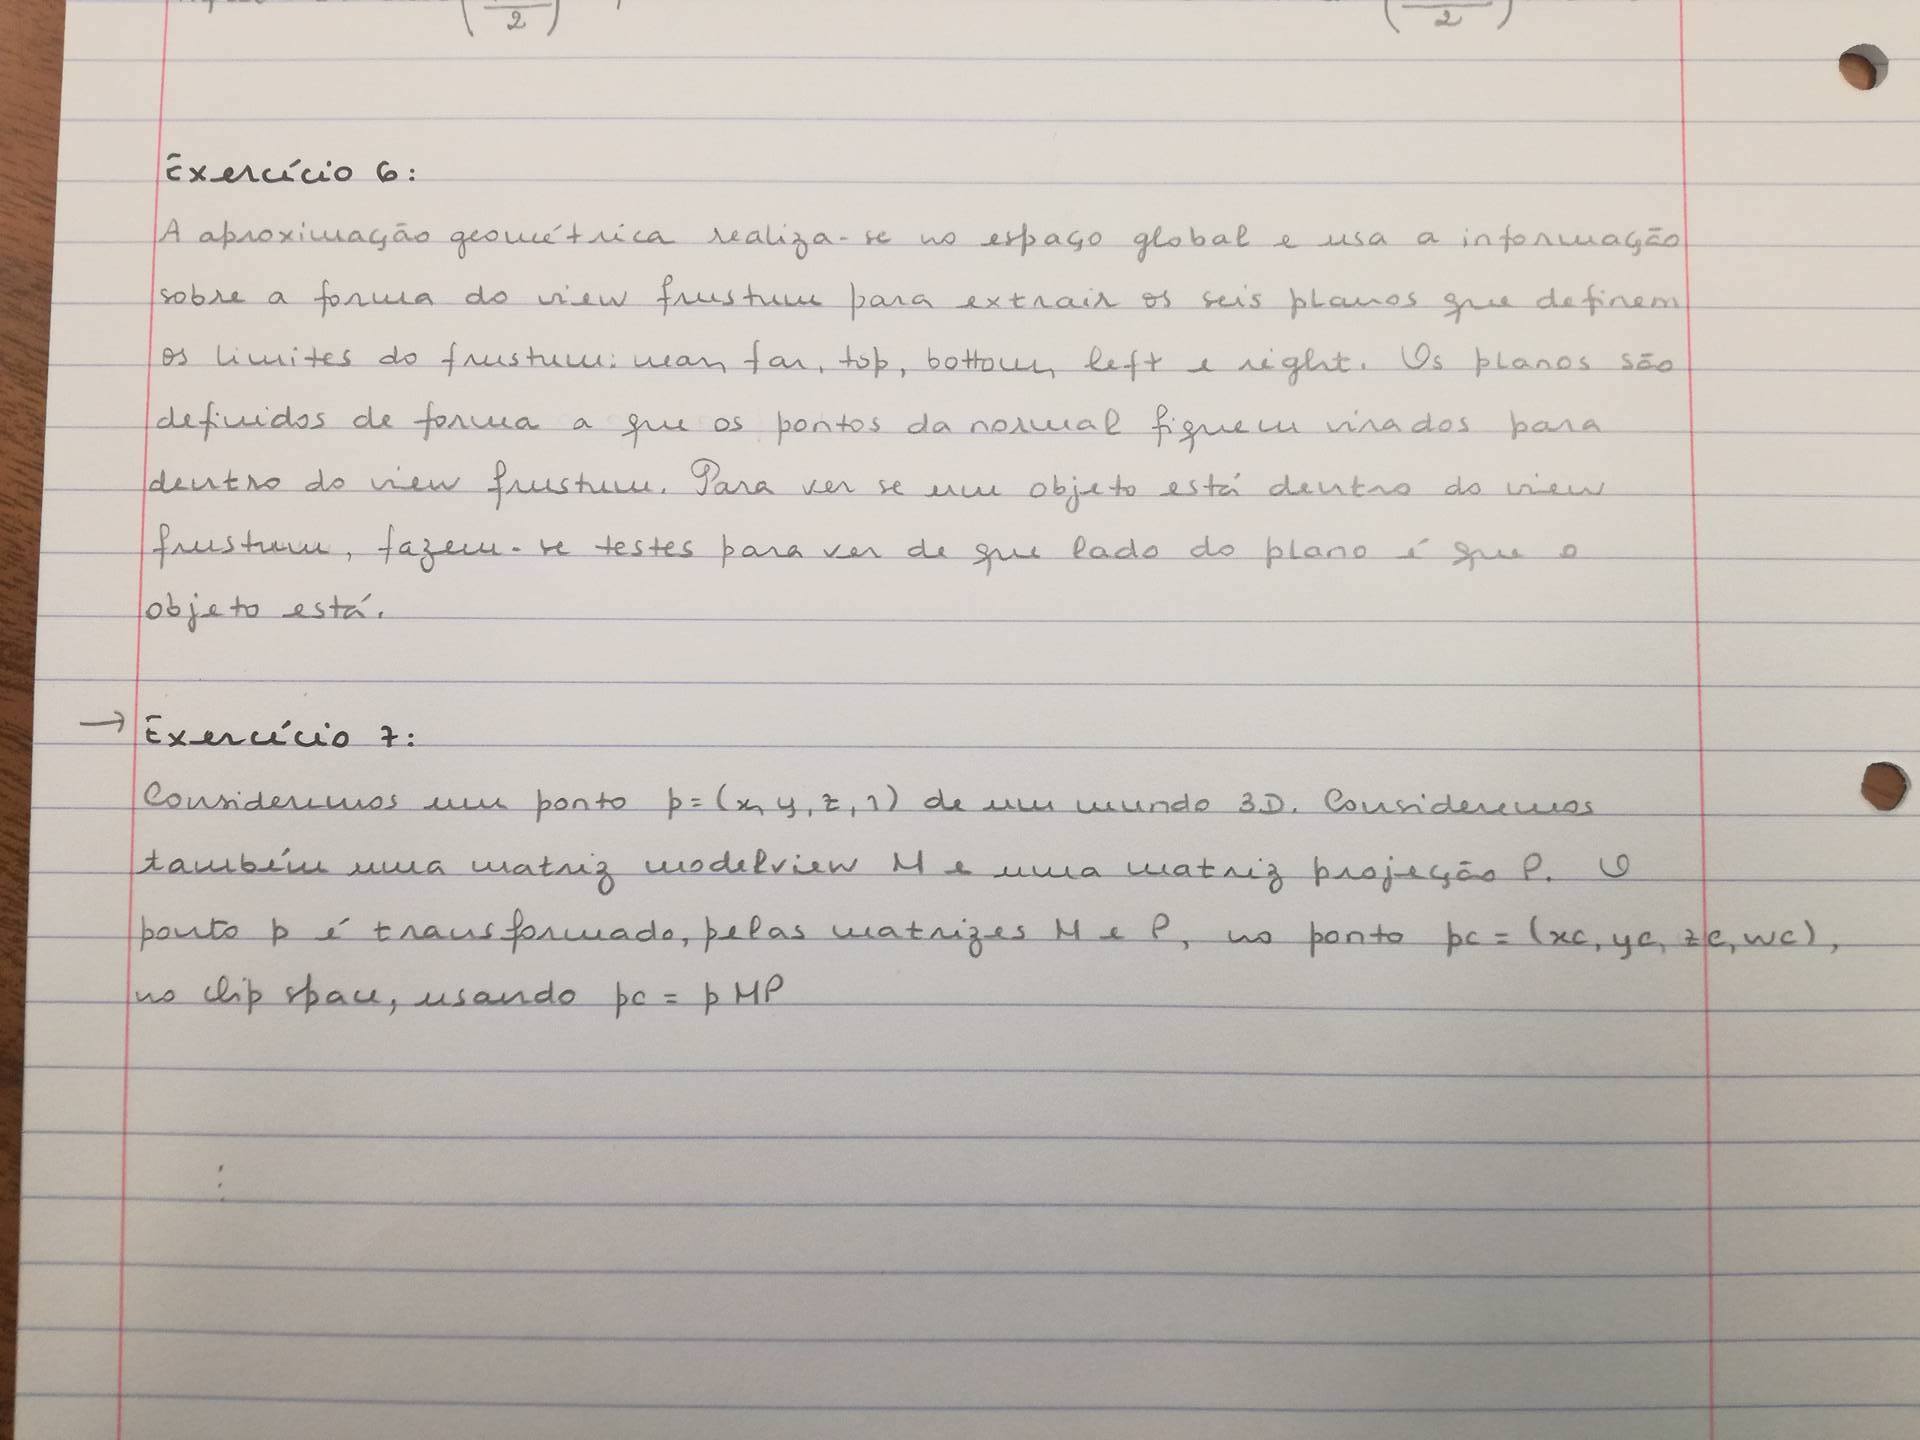 2 2
Exercício 6:
A aproximação geométrica realiza-se no espaço global e usa a informação
sobre a forma do view frustum para extrair os seis planos que definem
os limites do frustum: near, far, top, bottom, left e right. Os planos são
definidos de forma a que os pontos da normal fiquem virados para
dentro do view frustum. Para ver se um objeto está dentro do view
frustum, fazem-se testes para ver de que lado do plano é que o
objeto está.
→ Exercício 7:
Consideremos um ponto p=(x, y, z, 1) de um mundo 3D. Consideremos
também uma matriz modelview M e uma matriz projeção P. O
ponto p é transformado, pelas matrizes M e P, no ponto pc = (xc, yc, zc, wc),
no clip space, usando pc = pMP
: